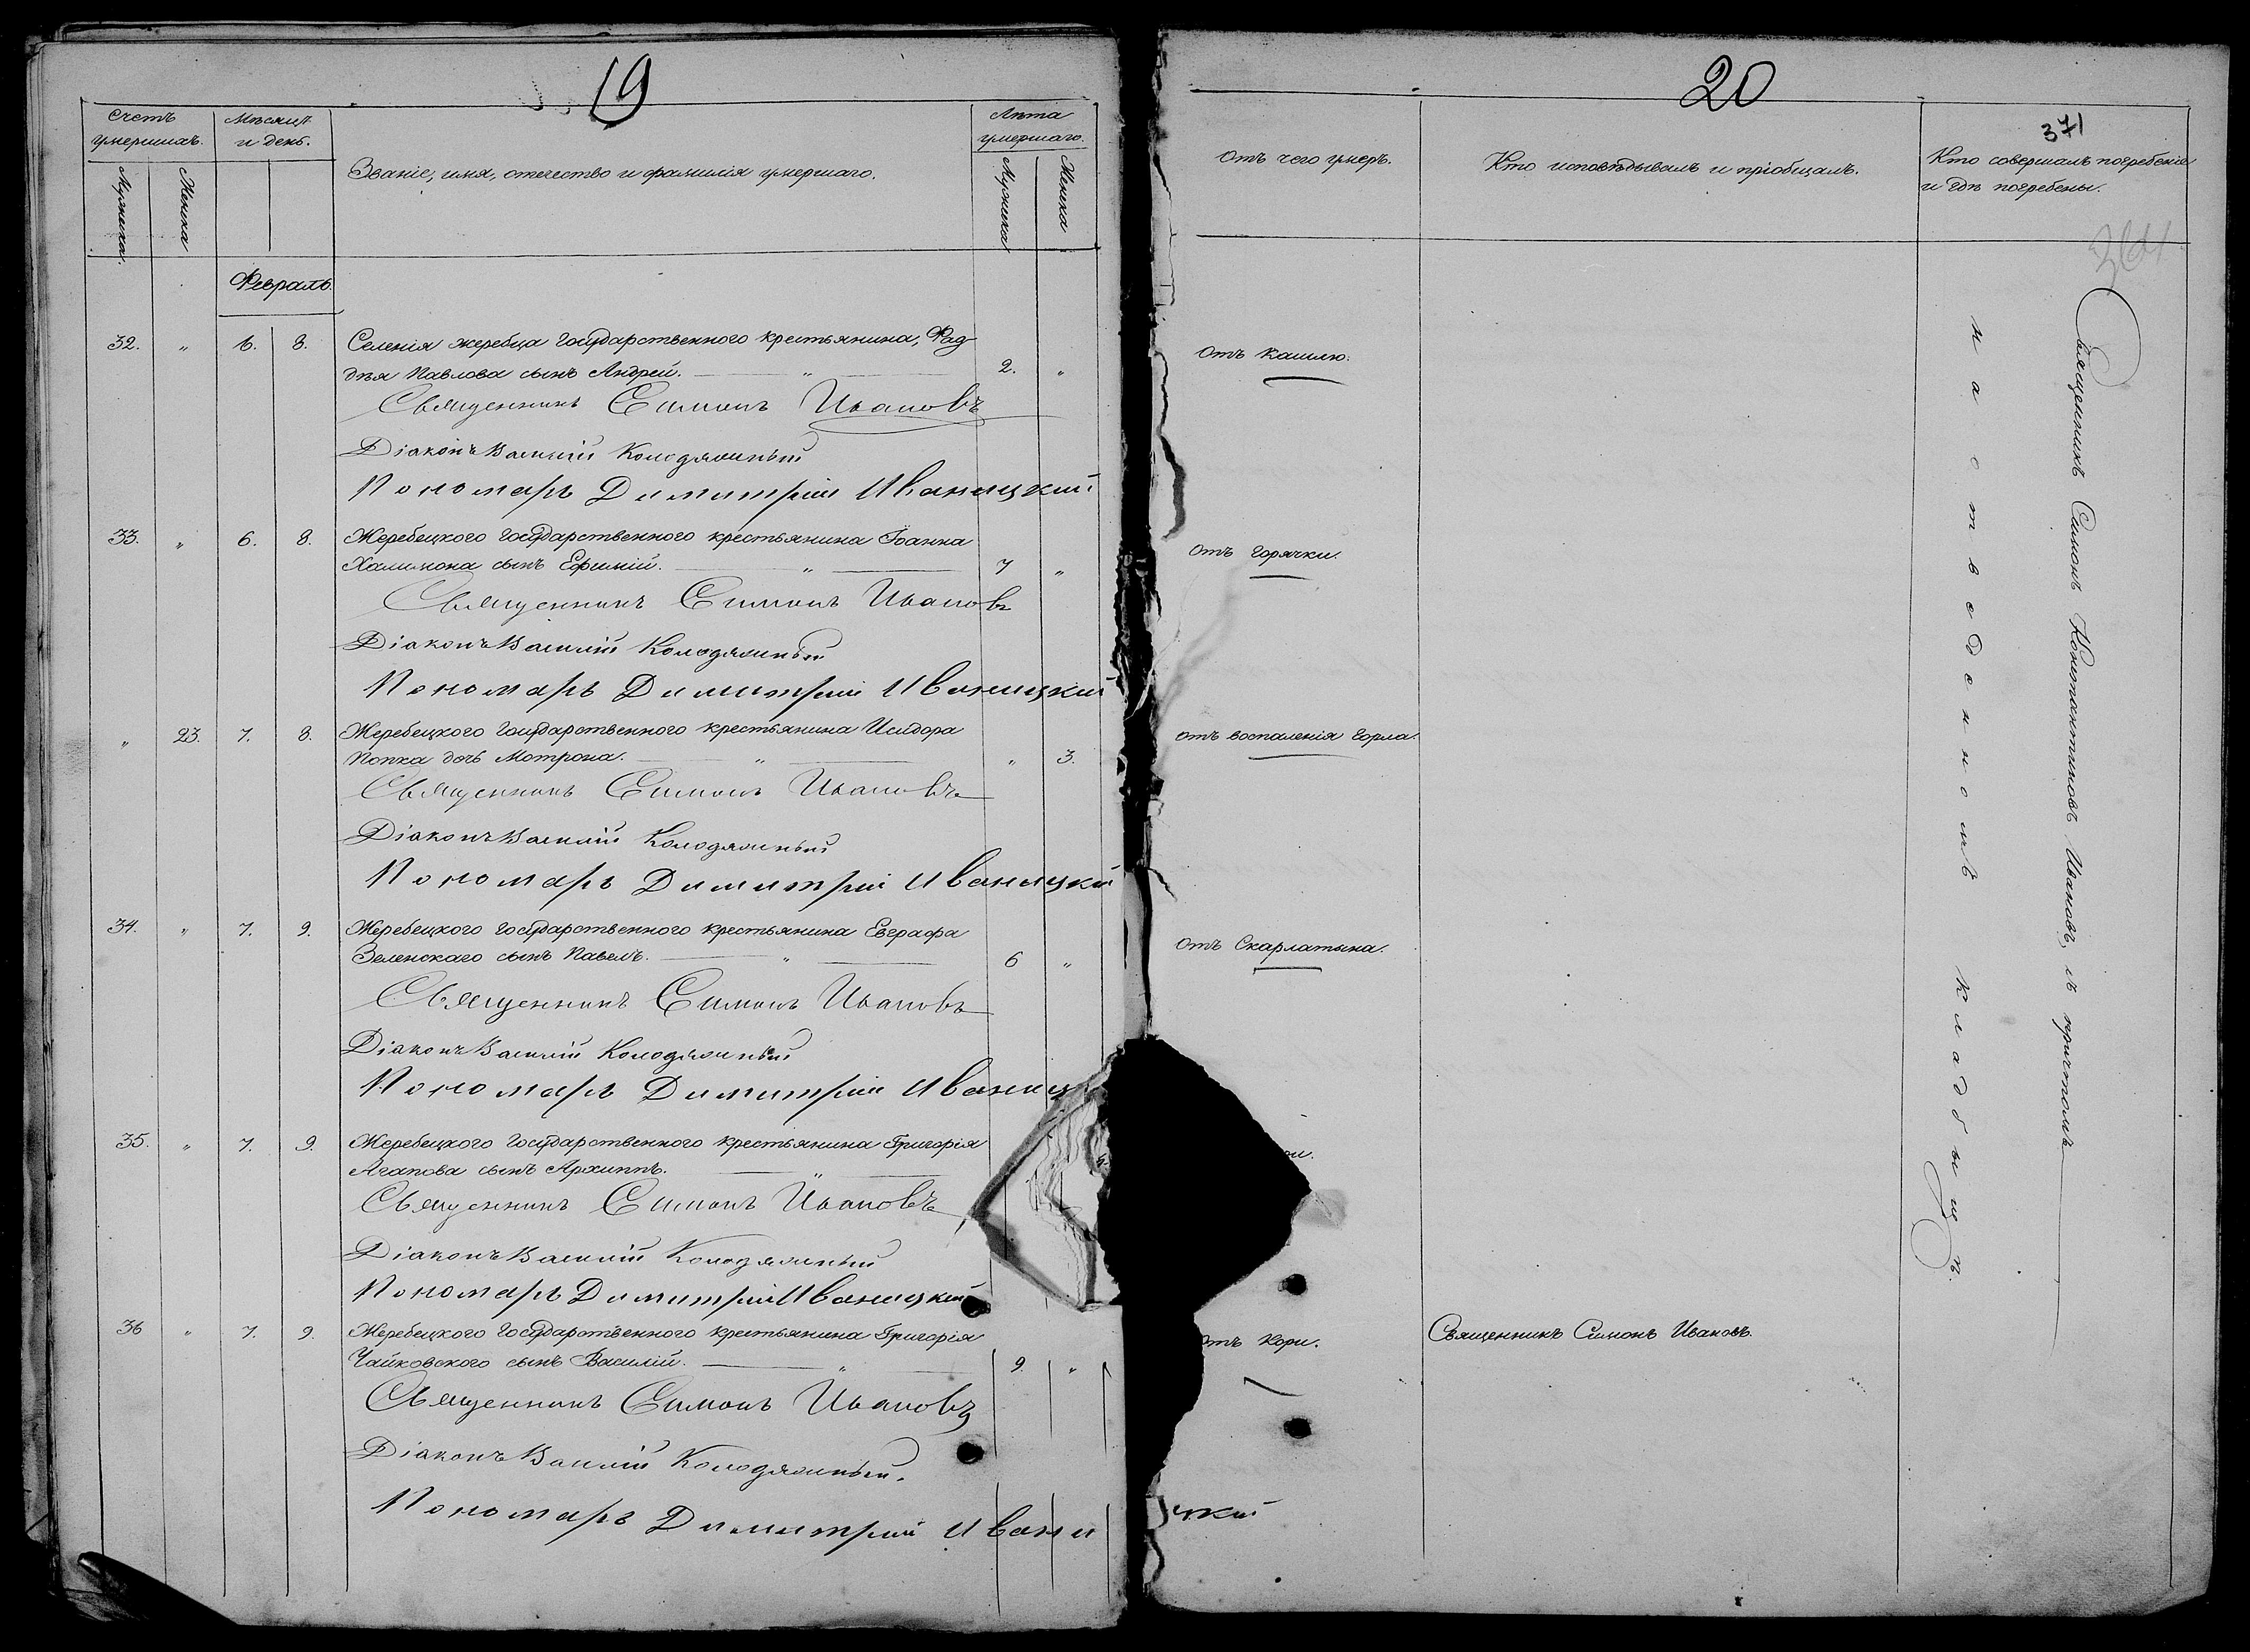 19
Счетъ умершихъ.
Мѣсяцъ и день.
Званіе, имя, отечество и фамилія умершаго.
Лѣта умершаго.
Мужеска.
Женска
Мужеска
Женска
Февраль.
32. " 6. 8. Селенія жеребца Государственного крестьянина, Фад-
дѣя Павлова сынъ Андрей. " 2. "
Священникъ Симонъ Ивановъ
Діаконъ Василій Колодяжный
Пономарь Димитрій Иваницкій
33. " 6. 8. Жеребецкого Государственного крестьянина Іоанна
Халимона сынъ Ефимій. " 7 "
Священникъ Симонъ Ивановъ
Діаконъ Василій Колодяжный
Пономарь Димитрій Иваницкий
" 23. 7. 8. Жеребецкого Государственного крестьянина Исидора
Попка дочь Мотрона. " " 3.
Священникъ Симонъ Ивановъ
Діаконъ Василій Колодяжный
Пономарь Димитрій Иваницкий
34. " 7. 9. Жеребецкого Государственного крестьянина Евграфа
Зеленскаго сынъ Павелъ. " 6 "
Священникъ Симонъ Ивановъ
Діаконъ Василій Колодяжный
Пономарь Димитрій Иваниц
35. " 7. 9. Жеребецкого Государственного крестьянина Григорія
Агапова сынъ Архиппъ. "
Священникъ Симонъ Ивановъ
Діаконъ Василій Колодяжный
Пономарь Димитрій Иваницкий
36 " 7. 9. Жеребецкого Государственного крестьянина Григорія
Чайковского сынъ Василій. " 9. "
Священникъ Симонъ Ивановъ
Діаконъ Василій Колодяжный.
Пономарь Димитрій Иваницкий
20
371
Отъ чего умеръ.
Кто исповѣдывалъ и пріобщалъ.
Кто совершалъ погребеніе
и гдѣ погребены.
Отъ Кашлю.
Отъ горячки.
отъ воспаленія горла.
отъ Скарлатына.
отъ Кори.
Священникъ Симонъ Ивановъ.
Священникъ Симонъ Константиновъ Ивановъ, съ причтомъ
на отведенномъ кладбищѣ.